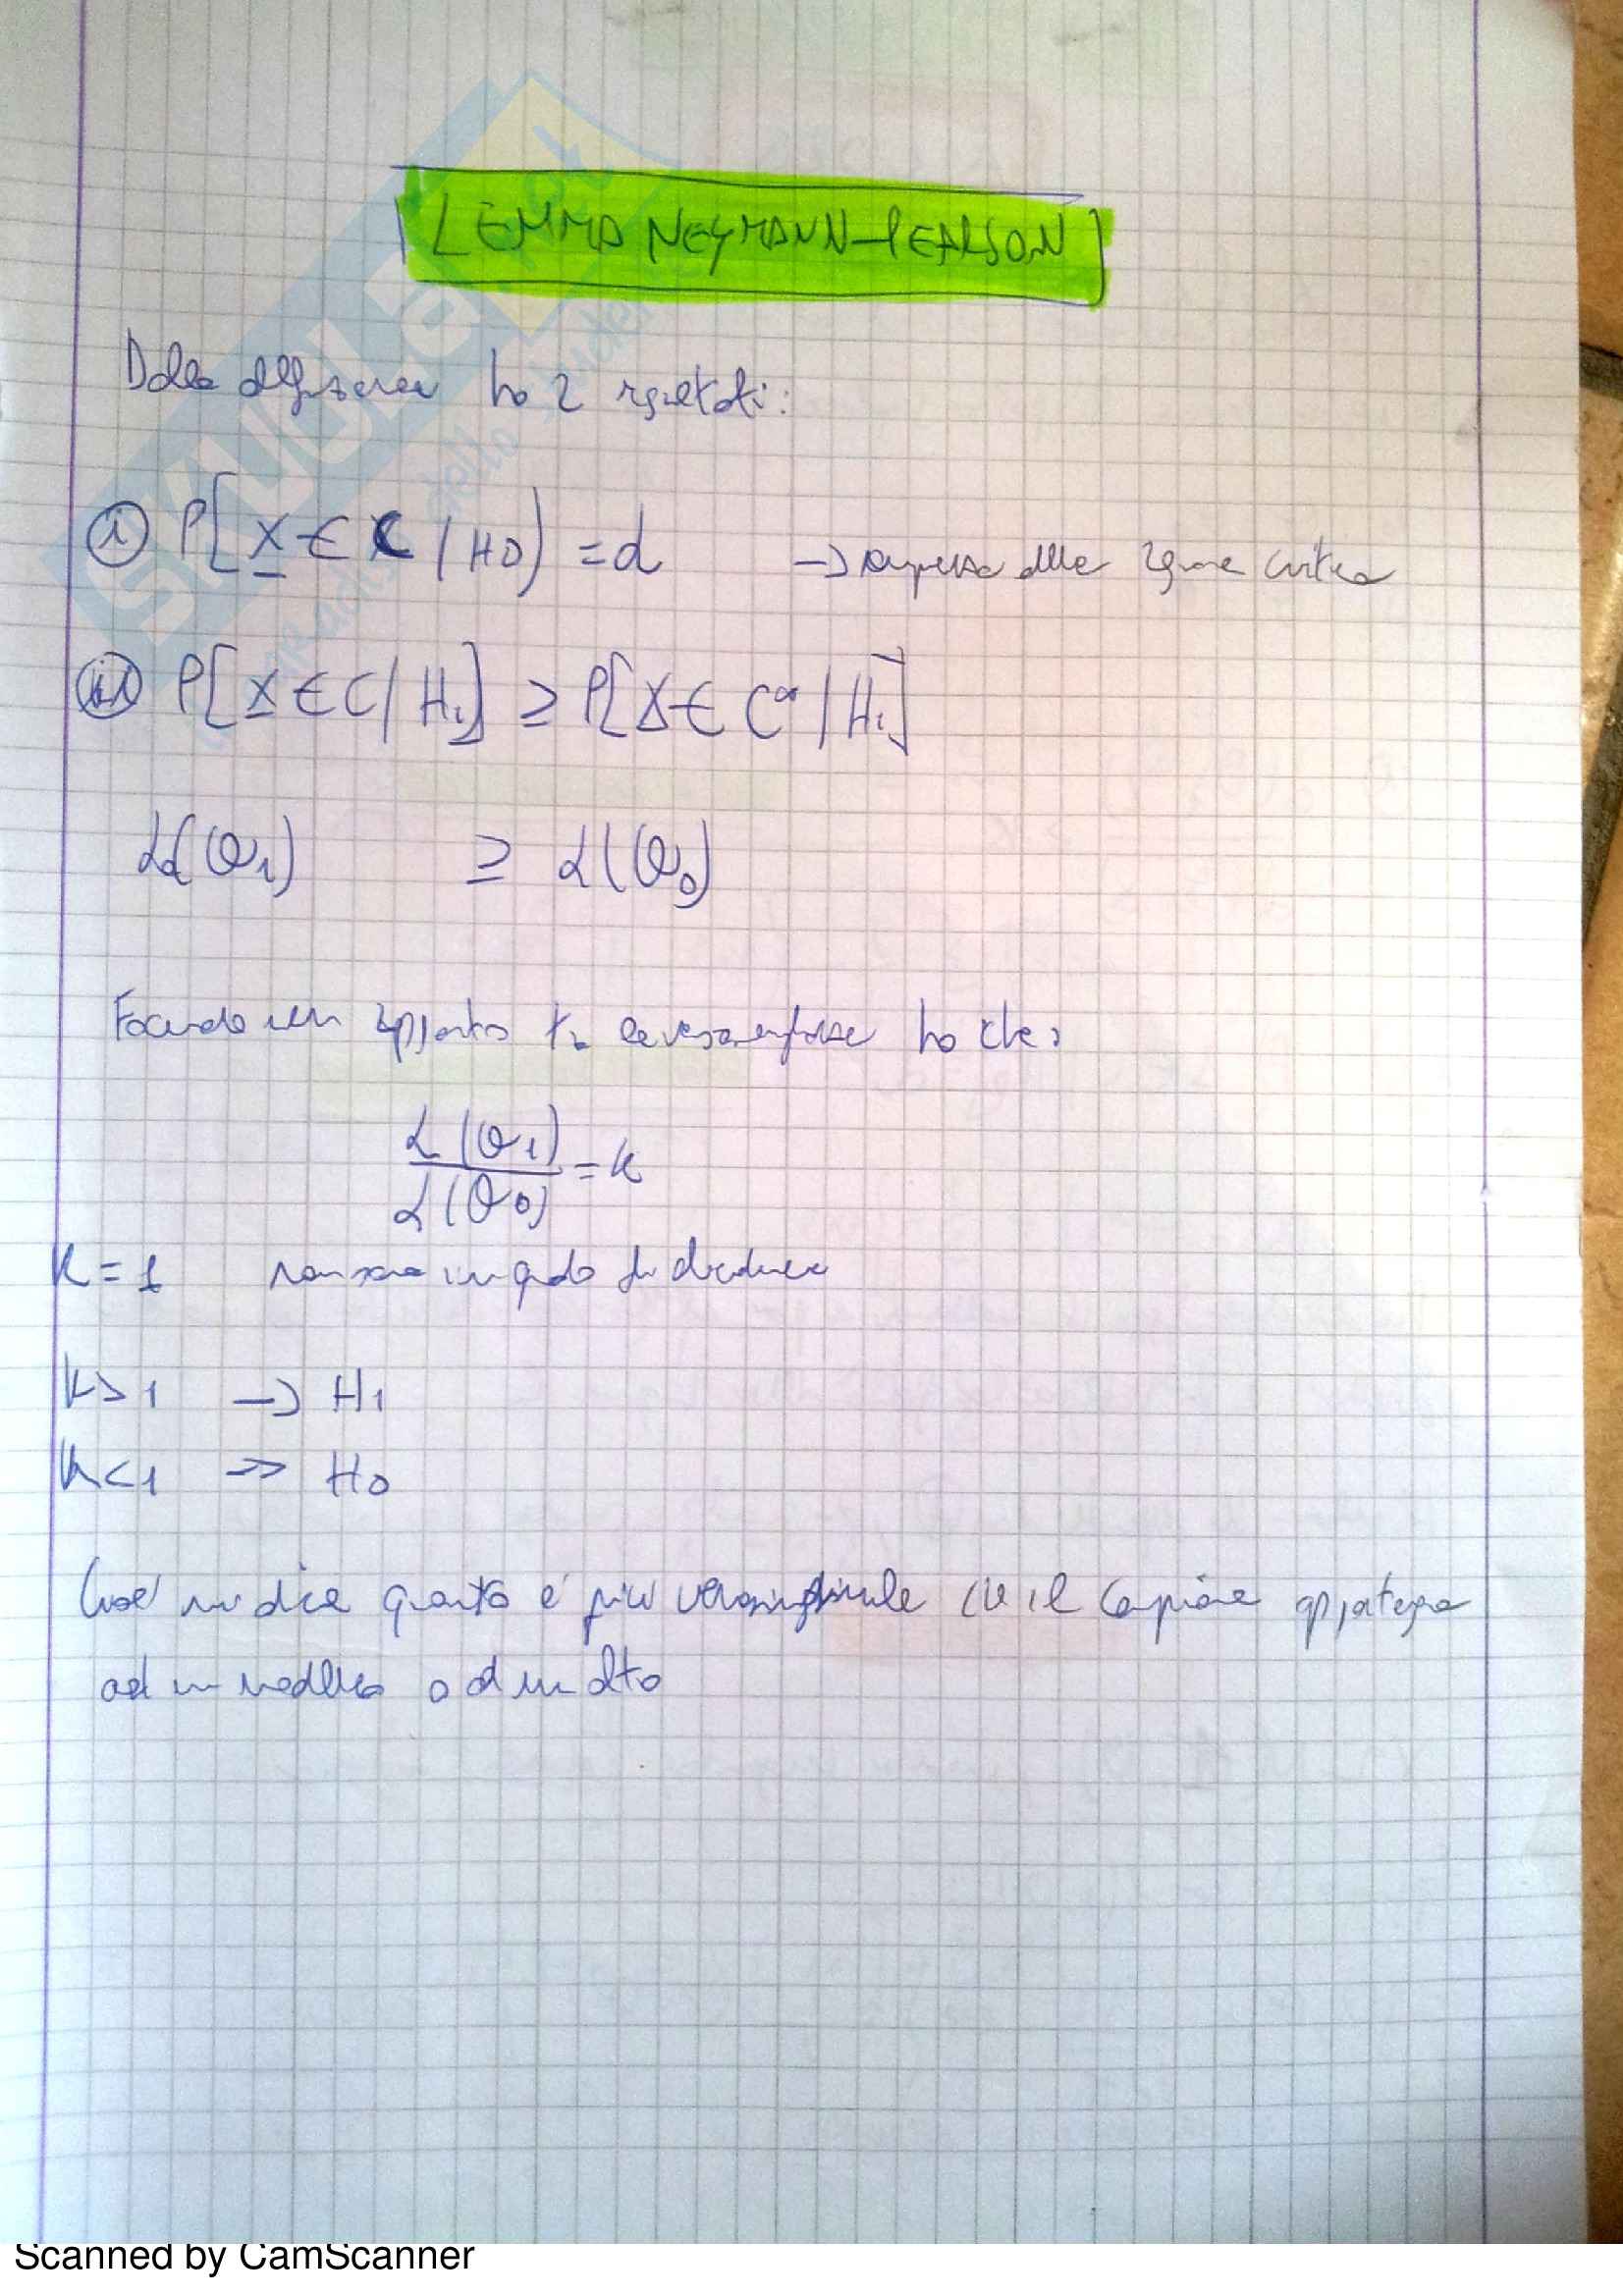 LEMMA NEYMANN-PEARSON
Dalla ho 2 risultati:
i) P[X ∈ C / H0) = α → ampiezza della regione critica
ii) P[X ∈ C / H1] ≥ P[X ∈ C* / H1]
L(θ1) ≥ L(θ0)
Facendo un rapporto tra le verosimiglianze ho che:
L(θ1)
L(θ0) = k
k = 1 non sono in grado di decidere
k > 1 → H1
k < 1 → H0
Cioè mi dice quanto è più verosimile che il campione appartenga
ad un modello o ad un altro
Scanned by CamScanner